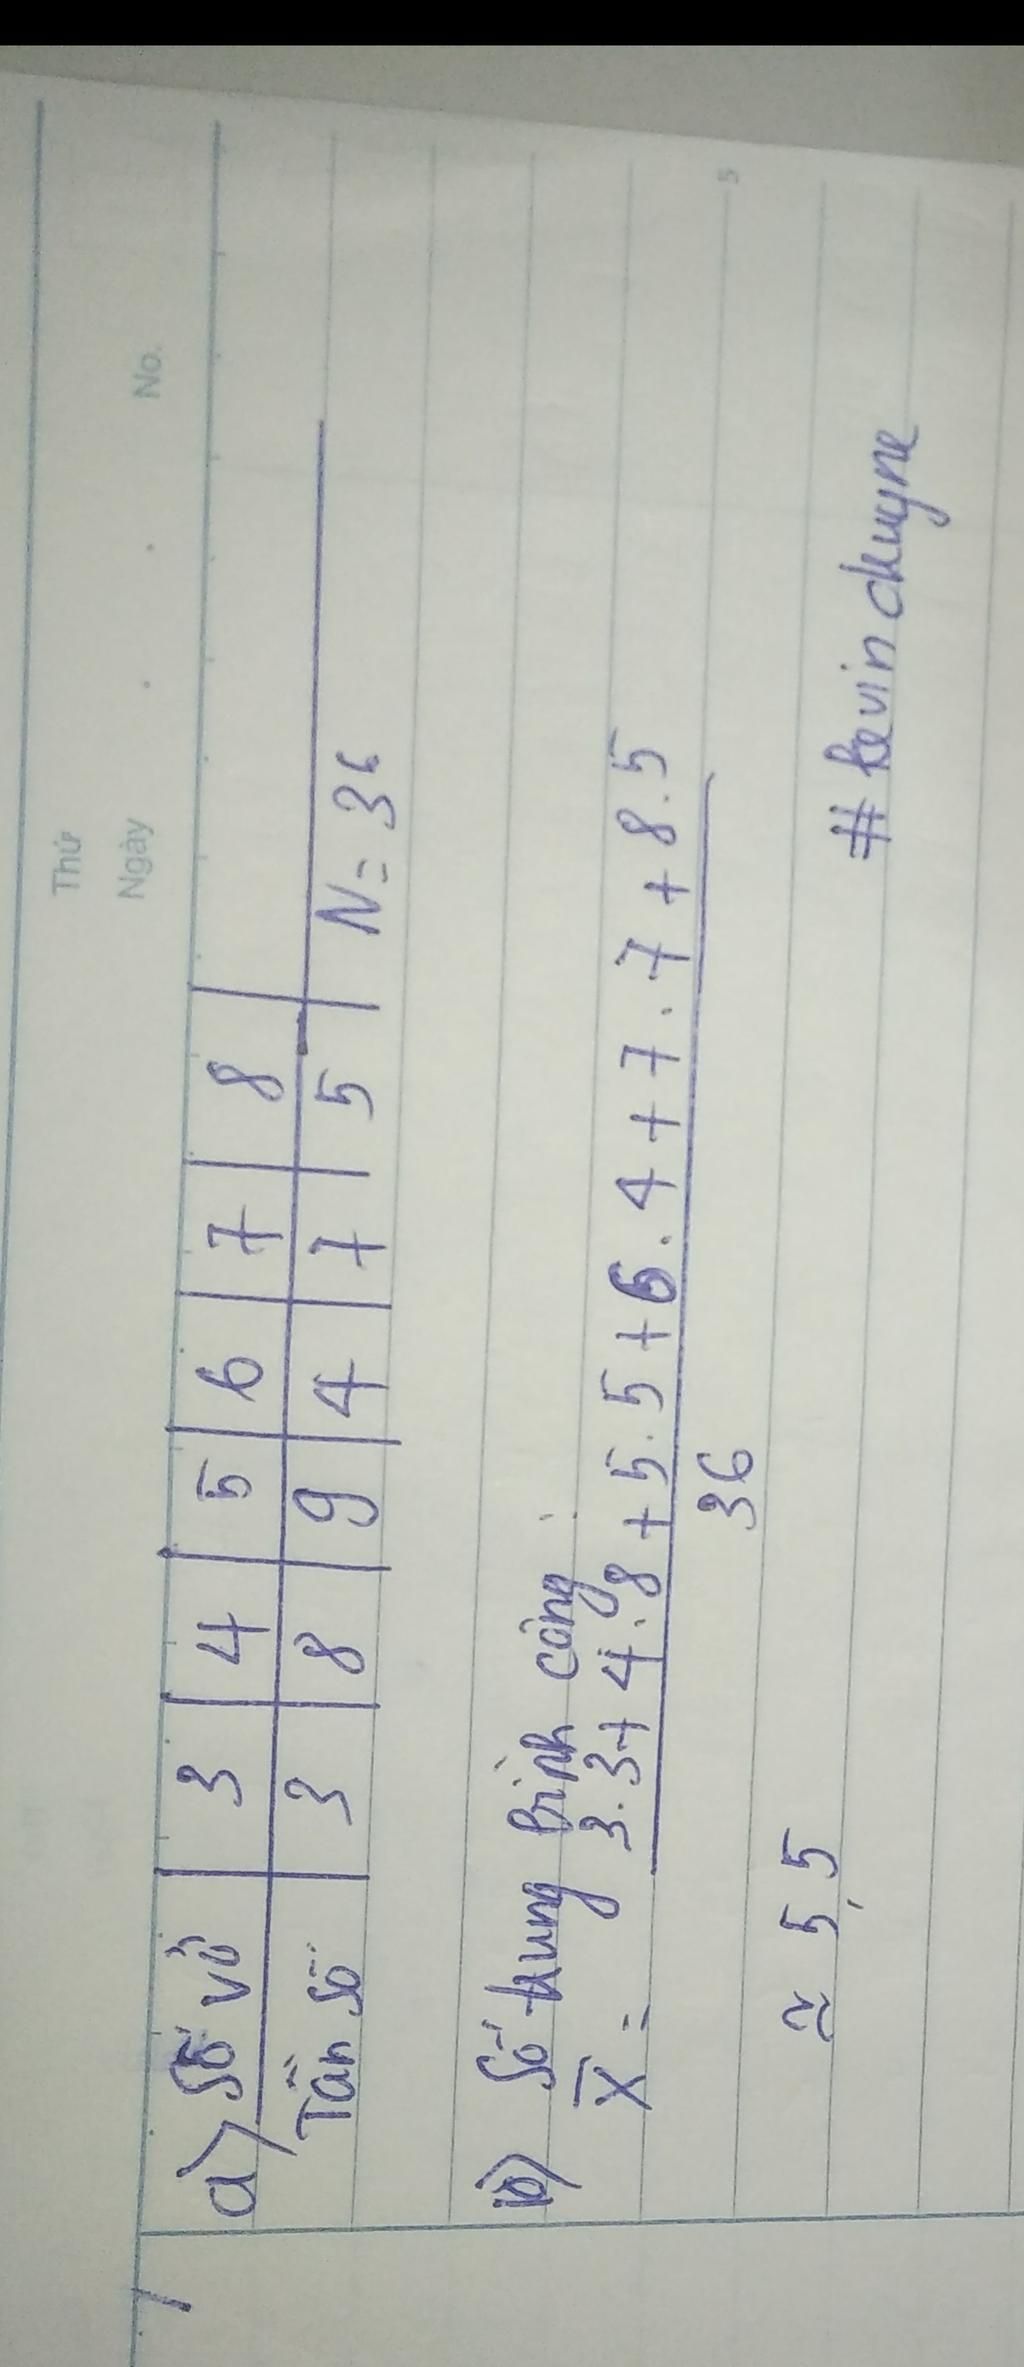 Thứ
Ngày . . No.
1
a) Số vở 3 4 5 6 7 8
Tần số 3 8 9 4 7 5 N = 36
b) Số trung bình cộng :
X̄ = 3.3+4.8+5.5+6.4+7.7+8.5
36
≈ 5,5
# kevin chuyne